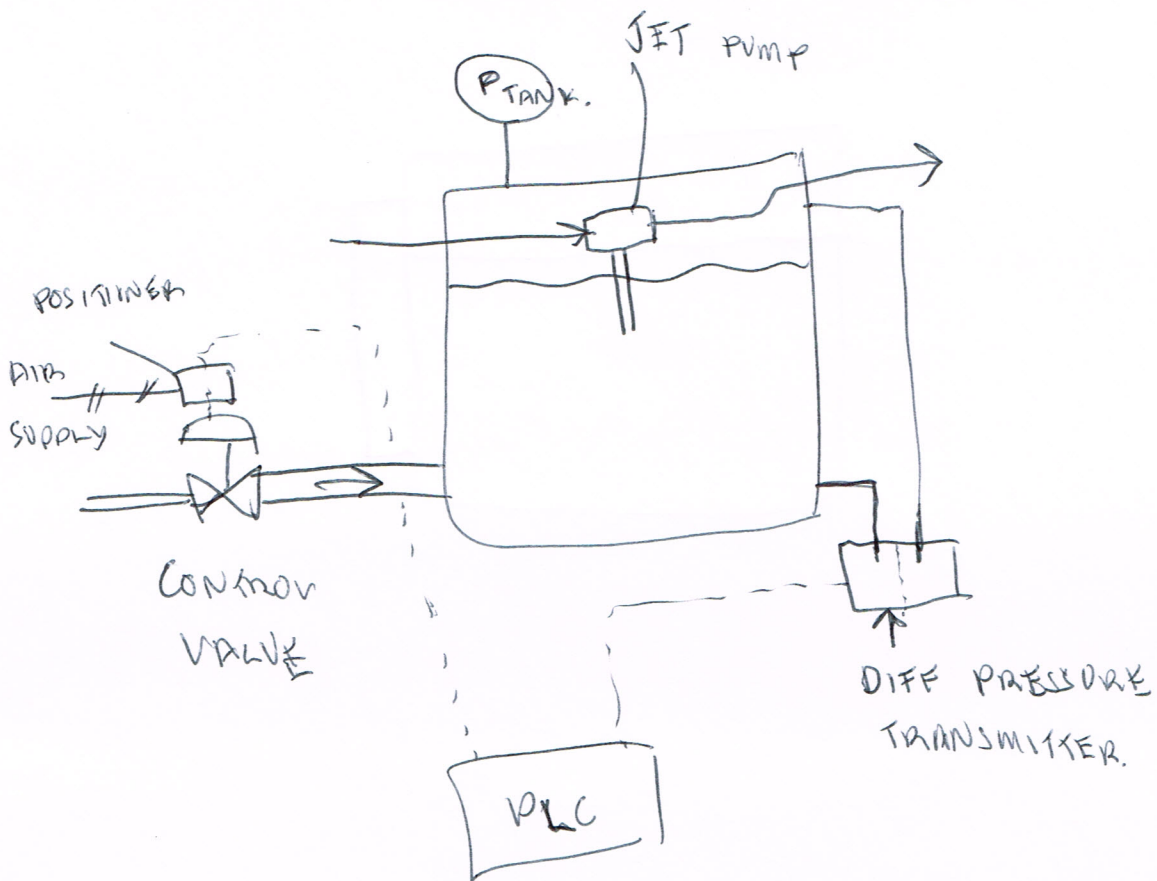 JET PUMP
P TANK.
POSITIONER
AIR
SUPPLY
CONTROL
VALVE
DIFF PRESSURE
TRANSMITTER.
PLC